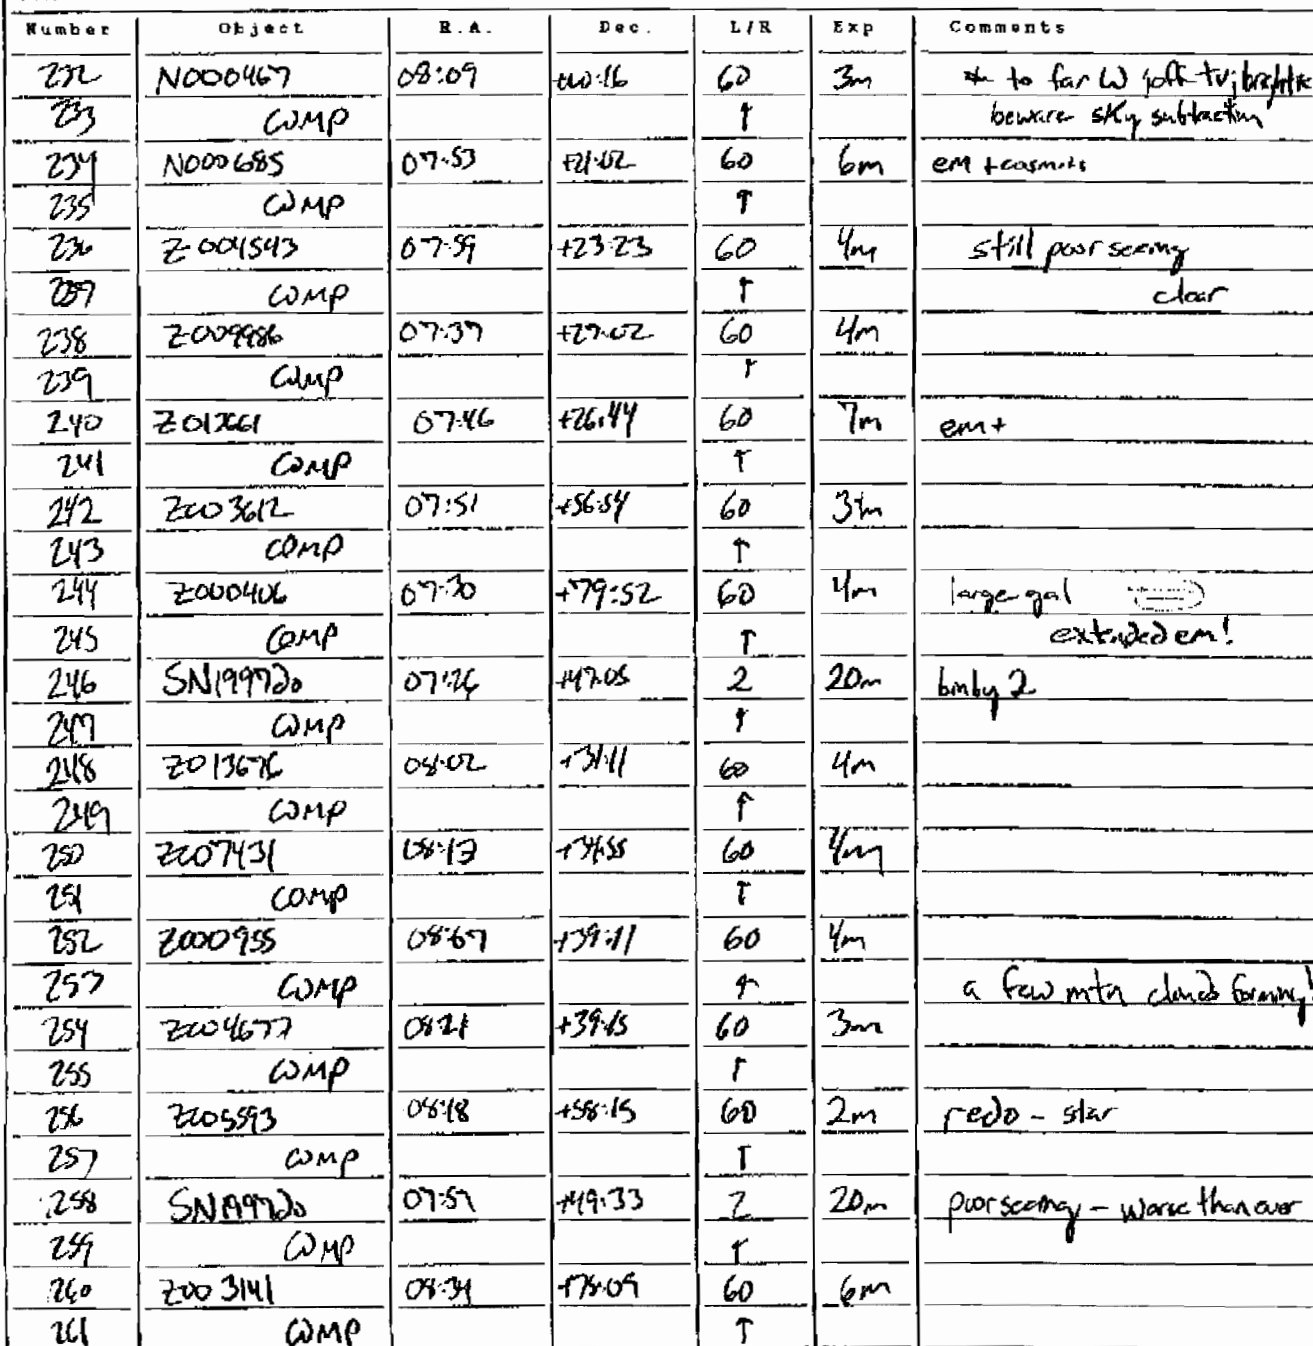 Number Object R.A. Dec. L/R Exp Comments
232 N000467 08:09 +00:16 60 3m * to far W joff tv; bright *
233 COMP ↑ beware sky subtraction
234 N000685 07:53 +21:02 60 6m em + cosmics
235 COMP ↑
236 Z004543 07:59 +23:23 60 4m still poor seeing
237 COMP ↑ clear
238 Z009986 07:37 +27:02 60 4m
239 COMP ↑
240 Z012661 07:46 +26:44 60 7m em+
241 COMP ↑
242 Z003612 07:51 +56:54 60 3m
243 COMP ↑
244 Z000406 07:30 +79:52 60 4m large gal
245 COMP ↑ extended em!
246 SN1997do 07:26 +47:05 2 20m bin by 2
247 COMP ↑
248 Z013676 08:02 +31:11 60 4m
249 COMP ↑
250 Z007431 08:13 +34:55 60 4m
251 COMP ↑
252 Z000955 08:07 +39:11 60 4m
253 COMP ↑ a few mtn clouds forming!
254 Z004677 08:21 +39:15 60 3m
255 COMP ↑
256 Z005593 08:18 +58:15 60 2m redo - star
257 COMP ↑
258 SN1997do 07:57 +49:33 2 20m poor seeing - worse than ever
259 COMP ↑
260 Z003141 08:34 +75:09 60 6m
261 COMP ↑